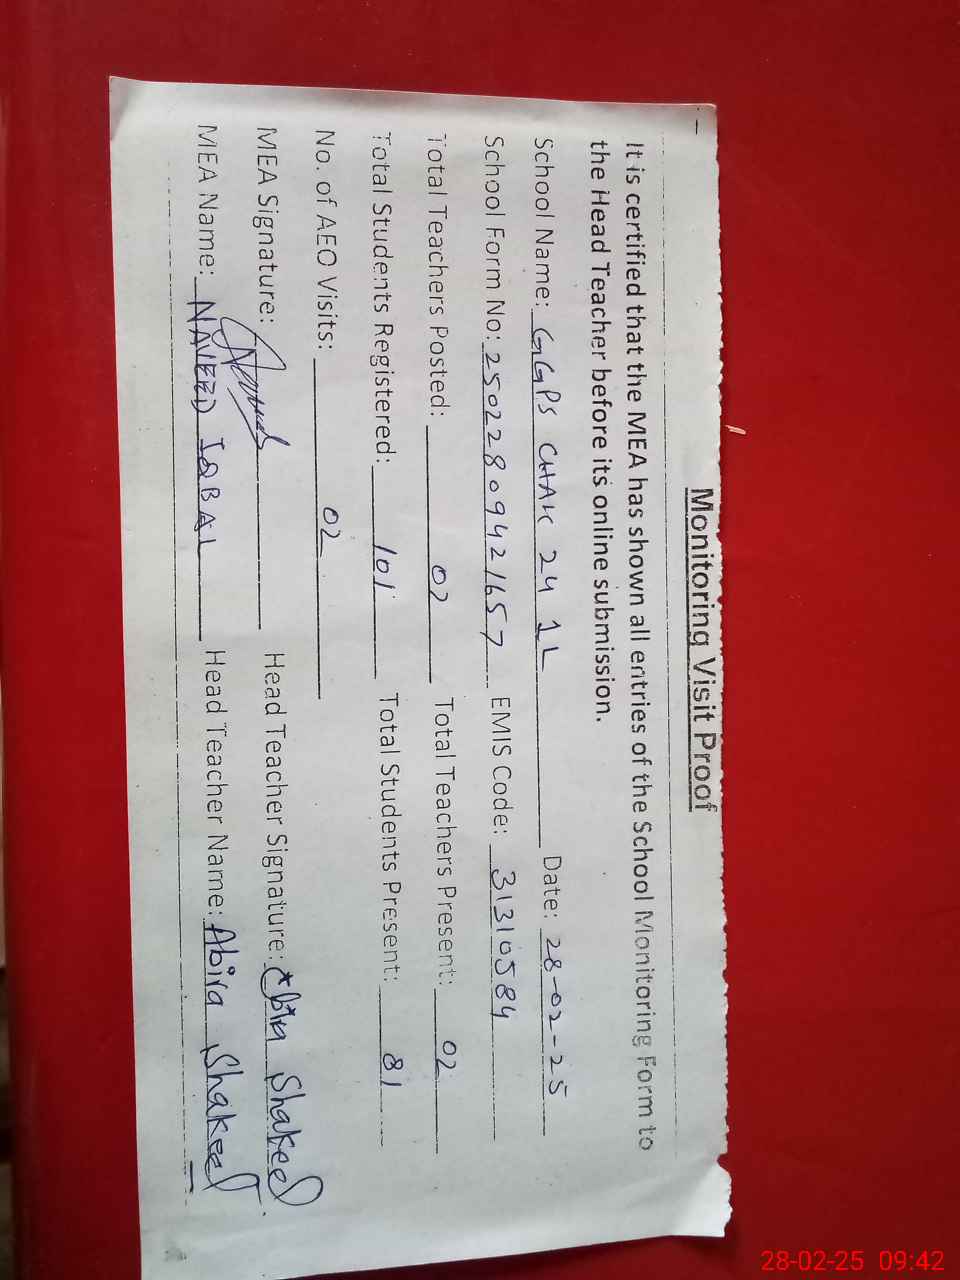 Monitoring Visit Proof
It is certified that the MEA has shown all entries of the School Monitoring Form to
the Head Teacher before its online submission.
School Name: GGPS CHAK 24 1L Date: 28-02-25
School Form No: 25022809421657 EMIS Code: 31310584
Total Teachers Posted: 02 Total Teachers Present: 02
Total Students Registered: 101 Total Students Present: 81
No. of AEO Visits: 02
MEA Signature: Head Teacher Signature: Abira Shakeel
MEA Name: NAVEED IQBAL Head Teacher Name: Abira Shakeel
28-02-25 09:42